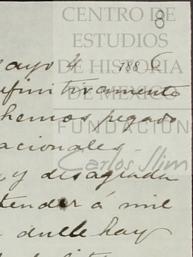 8
CENTRO DE
ESTUDIOS
DE HISTORIA
DE MÉXICO
FUNDACIÓN
Carlos Slim
ayo 4 1886
finitivamente
hemos pegado
acionales
y desagrada
tender á mil
dulle hay